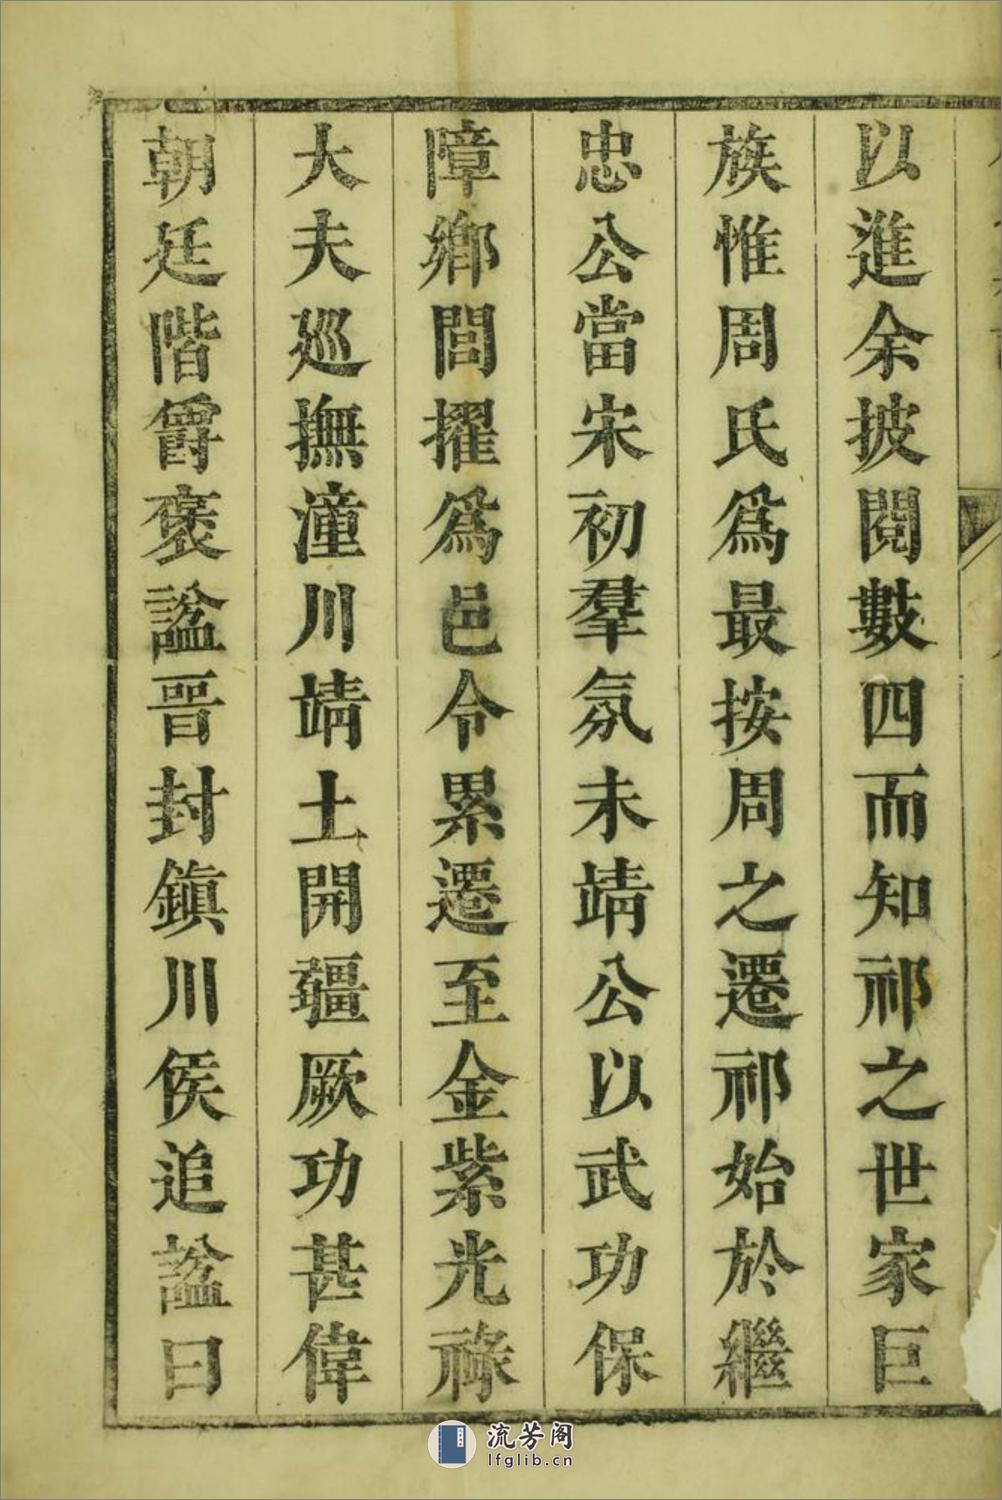 以進余披閱數四而知祁之世家巨
族惟周氏爲最按周之遷祁始於繼
忠公當宋初羣氛未靖公以武功保
障鄉閭擢爲邑令累遷至金紫光祿
大夫廵撫潼川靖土開疆厥功甚偉
朝廷階爵褒諡晋封鎮川侯追諡曰
流芳阁
lfglib.cn